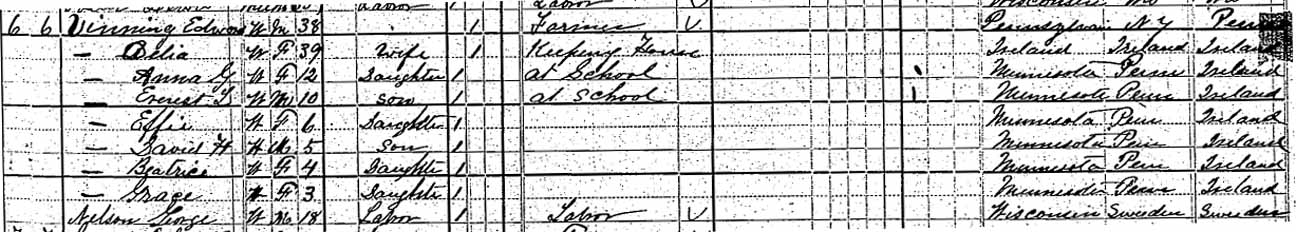 Labor Labor Wisconsin
6 6 Vinning Edward W M 38 1 Farmer V Pennsylvan N Y Penn
— Delia W F 39 Wife 1 Keeping House Ireland Ireland Ireland
— Anna G W F 12 Daughter 1 at School 1 Minnesota Penn Ireland
— Everest L W M 10 Son 1 at School 1 Minnesota Penn Ireland
— Effie W F 6 Daughter 1 Minnesota Penn Ireland
— David H W M 5 Son 1 Minnesota Penn Ireland
— Beatrice W F 4 Daughter 1 Minnesota Penn Ireland
— Grace W F 3 Daughter 1 Minnesota Penn Ireland
Nelson George W M 18 Labor 1 Labor V Wisconsin Sweeden Sweeden